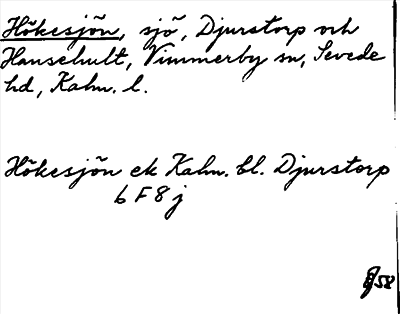 Hökesjön, sjö, Djurstorp och
Hansehult, Vimmerby sn, Sevede
hd, Kalm. l.
Hökesjön ek Kalm. bl. Djurstorp
6 F 8 j
58